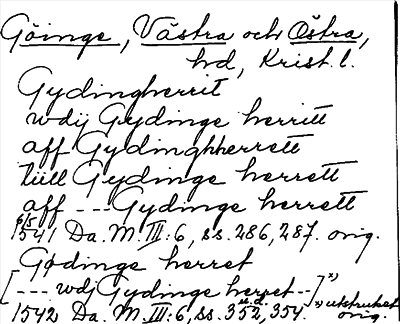 Göinge, Västra och Östra,
hd, Krist. l.
Gydingherrit
wdij Gydinge herritt
aff Gydinghherrett
tiill Gydinge herrett
aff --- Gydinge herrett
6/5 1541 Da. M. III: 6, ss. 286, 287. orig.
Gødinge herret
[--- wdj Gydinge herret --]ˣ⁾
1542 Da. M. III: 6, ss. 352, 354. ˣ⁾ utstruket orig.